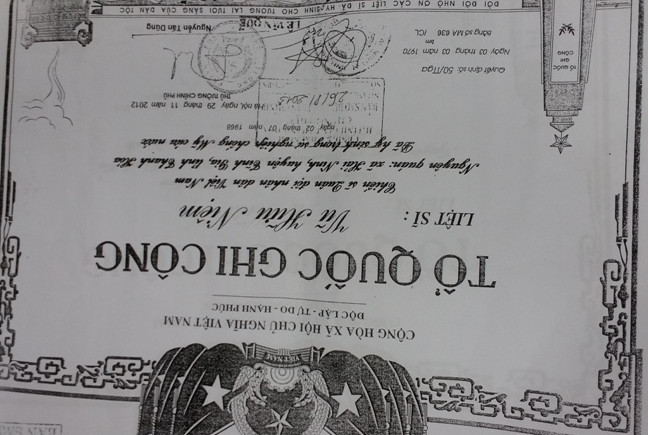 VIỆT NAM
CỘNG HÒA XÃ HỘI CHỦ NGHĨA VIỆT NAM
ĐỘC LẬP - TỰ DO - HẠNH PHÚC
TỔ QUỐC GHI CÔNG
LIỆT SĨ: Vũ Hữu Niệm
Chiến sĩ Quân đội nhân dân Việt Nam
Nguyên quán: xã Hải Ninh, huyện Tĩnh Gia, tỉnh Thanh Hóa
Đã hy sinh trong sự nghiệp chống Mỹ cứu nước
ngày 02 tháng 01 năm 1968
Hà Nội, ngày 29 tháng 11 năm 2012
THỦ TƯỚNG CHÍNH PHỦ
26/8/2013
TỔ QUỐC
GHI
CÔNG
Quyết định số: 50/TTga
Ngày 03 tháng 03 năm 1970
Bằng số MA 636 ICL
LÊ VĂN QUẾ
Nguyễn Tấn Dũng
ĐỜI ĐỜI NHỚ ƠN CÁC LIỆT SĨ ĐÃ HY SINH CHO TƯƠNG LAI TƯƠI SÁNG CỦA DÂN TỘC